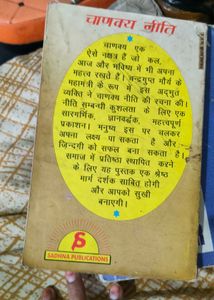 चाणक्य नीति
चाणक्य एक
ऐसे नक्षत्र है जो कल,
आज और भविष्य में भी अपना
महत्व रखते है। चन्द्रगुप्त मौर्य के
महामंत्री के रूप में इस अद्भुत
व्यक्ति ने चाणक्य नीति की रचना की।
नीति सम्बन्धी कुशलता के लिए एक
सारगर्भित, ज्ञानवर्द्धक, महत्वपूर्ण
प्रकाशन। मनुष्य इस पर चलकर
अपना लक्ष्य पा सकता है और
जिन्दगी को सफल बना सकता है।
समाज में प्रतिष्ठा स्थापित करने
के लिए यह पुस्तक एक श्रेष्ठ
मार्ग दर्शक साबित होगी
और आपको सुखी
बनाएगी।
SADHNA PUBLICATIONS